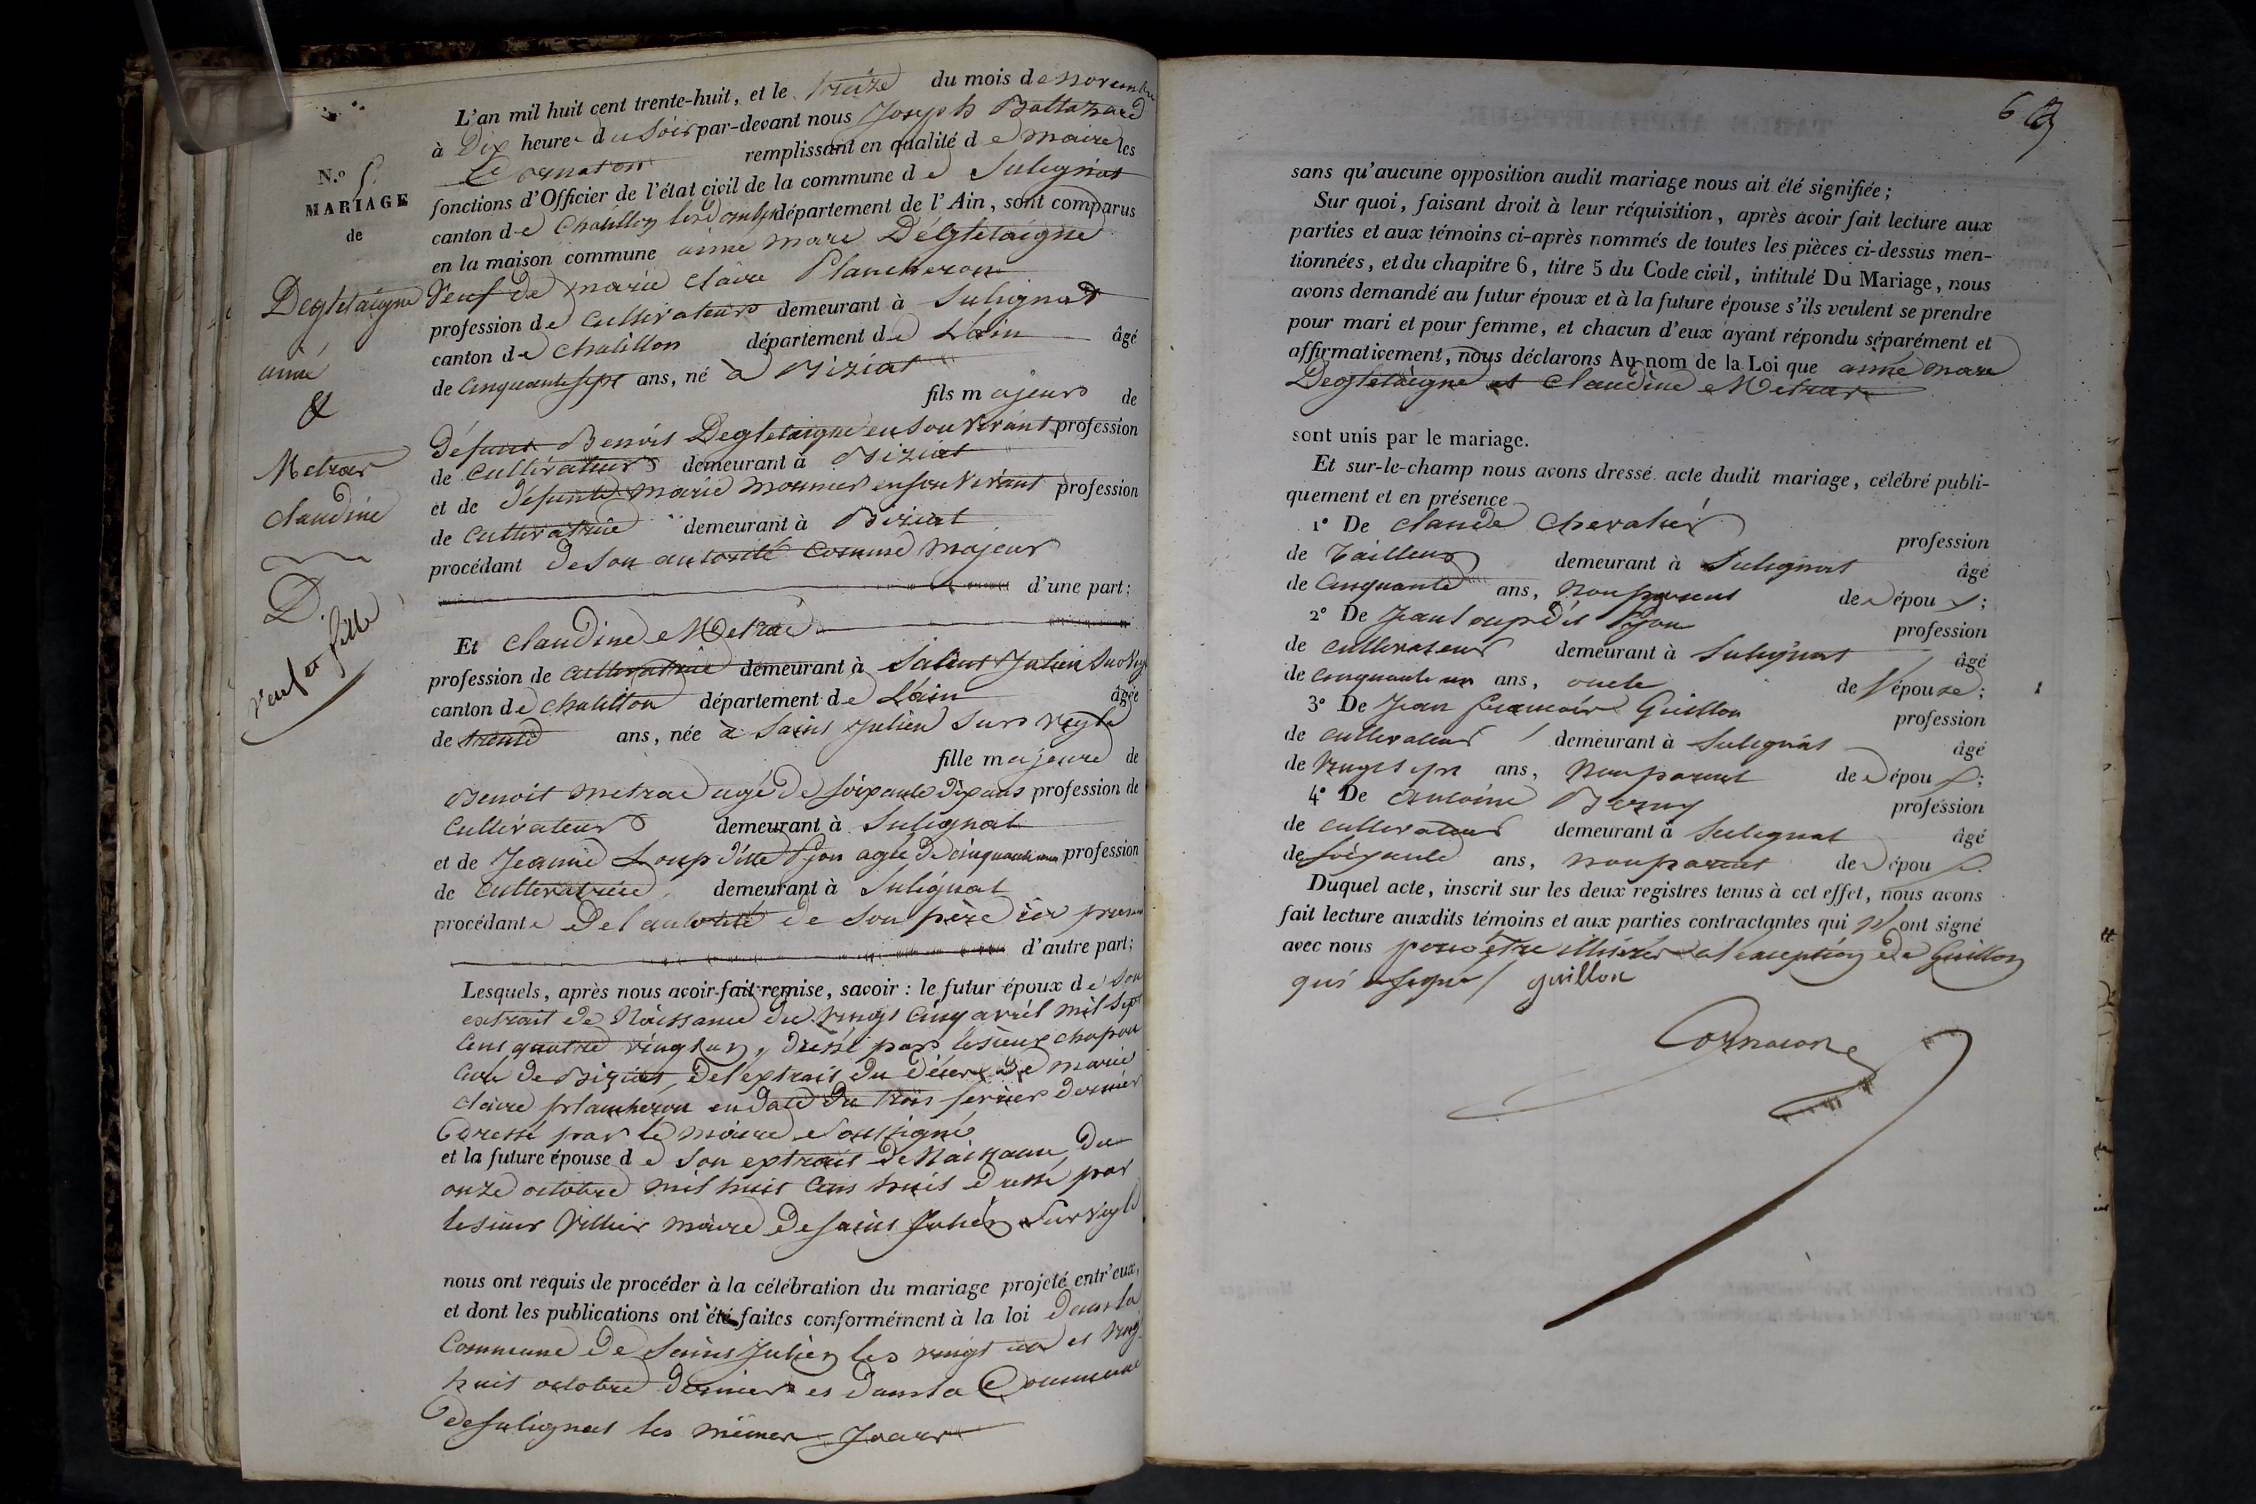 N.o 5.
MARIAGE
de
Degletaigne
aimé
&
Metrar
claudine
D.
veuf et fille
L'an mil huit cent trente-huit, et le treize du mois de novembre
à Dix heures du Soir par-devant nous Joseph Baltazard
Cornaton remplissant en qualité de maire les
fonctions d'Officier de l'état civil de la commune de Sulignat
canton de Chatillon les dombes département de l'Ain, sont comparus
en la maison commune aimé mare Degletaigne
Veuf de marie claire Plancheron
profession de Cultivateur demeurant à Sulignat
canton de chatillon département de L'ain âgé
de Cinquante sept ans, né à Biziat
fils majeur de
défunt Benoit Degletaigne en son vivant profession
de Cultivateur demeurant à Biziat
et de défunte marie monnier en son vivant profession
de Cultivatrice demeurant à Biziat
procédant de son autorité comme majeur
d'une part;
Et claudine Metrar
profession de cultivatrice demeurant à Saint Julien sur Veyle
canton de chatillon département de L'ain âgée
de trente ans, née à Saint Julien sur veyle
fille majeure de
Benoit metrar agé de soixante dix ans profession de
Cultivateur demeurant à Sulignat
et de Jeanne Loup ditte Pijon agée de cinquante un profession
de cultivatrice demeurant à Sulignat
procédante De l'autorité de son père ici present
d'autre part;
Lesquels, après nous avoir fait remise, savoir: le futur époux de son
extrait de Naissance du vingt cinq avril mil sept
cent quatre vingt un, dressé par le sieur chapon
curé de Biziat, de l'extrait du décès de marie
claire plancheron en date du trois fevrier dernier
Dressé par le maire Soussigné
et la future épouse de son extrait de Naissance du
onze octobre mil huit cent huit dressé par
le sieur Villier maire de saint Julien sur veyle
nous ont requis de procéder à la célébration du mariage projeté entr'eux,
et dont les publications ont été faites conformément à la loi Dans la
Commune de Saint Julien les vingt un et vingt
huit octobre dernier et dans la Commune
de Sulignat les mêmes Jours
6
sans qu'aucune opposition audit mariage nous ait été signifiée;
Sur quoi, faisant droit à leur réquisition, après avoir fait lecture aux
parties et aux témoins ci-après nommés de toutes les pièces ci-dessus men-
tionnées, et du chapitre 6, titre 5 du Code civil, intitulé Du Mariage, nous
avons demandé au futur époux et à la future épouse s'ils veulent se prendre
pour mari et pour femme, et chacun d'eux ayant répondu séparément et
affirmativement, nous déclarons Au nom de la Loi que aimé mare
Degletaigne et Claudine Metrar
sont unis par le mariage.
Et sur-le-champ nous avons dressé acte dudit mariage, célébré publi-
quement et en présence
1° De claude Chevalier profession
de Tailleur demeurant à Sulignat âgé
de Cinquante ans, non parent des époux;
2° De Jean Loup dit Pijon profession
de cultivateur demeurant à Sulignat âgé
de cinquante un ans, oncle de l'épouse;
3° De Jean francois Guillon profession
de cultivateur demeurant à Sulignat âgé
de vingt sept ans, non parent des époux;
4° De Antoine Berny profession
de cultivateur demeurant à Sulignat âgé
de soixante ans, non parent des époux.
Duquel acte, inscrit sur les deux registres tenus à cet effet, nous avons
fait lecture auxdits témoins et aux parties contractantes qui n'ont signé
avec nous pour être illitérés a l'exception de Guillon
qui a signé guillon
Cornaton